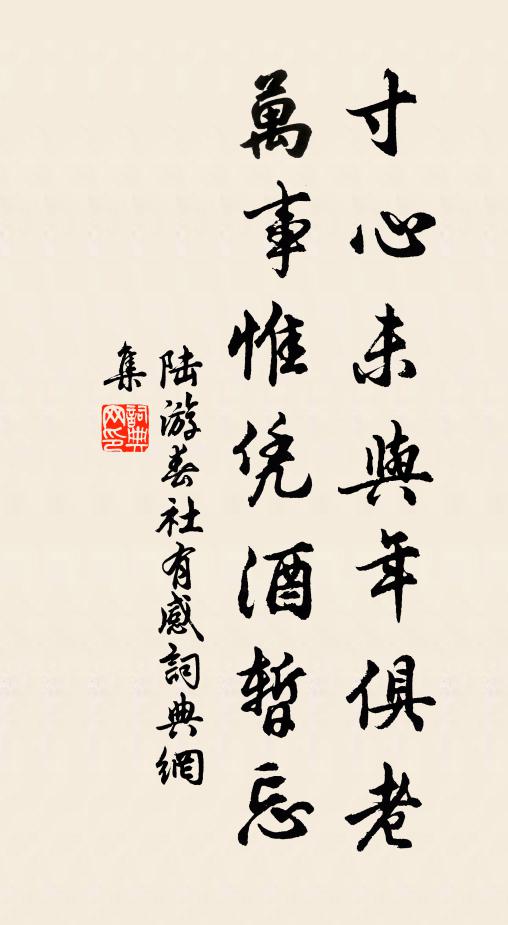 寸心未與年俱老
萬事惟凭酒暫忘
陸游春社有感詞典網
集
詞典
网印